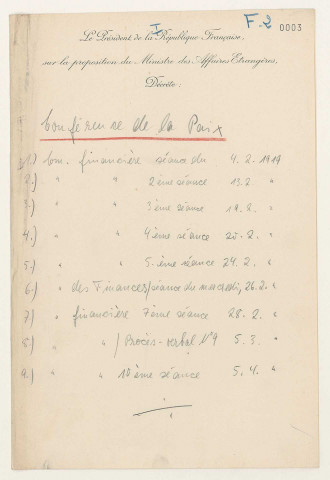 I F-2 0003
Le Président de la République Française,
sur la proposition du Ministre des Affaires Etrangères,
Décrète:
Conférence de la Paix
1.) Com. financière séance du 4.2.1919
2.) " " 2ème séance 13.2. "
3.) " " 3ème séance 19.2. "
4.) " " 4ème séance 20.2. "
5.) " " 5.ème séance 24.2. "
6.) " des Finances/séance du mercredi, 26.2. "
7.) " financière 7ème séance 28.2. "
8.) " " / Procès-verbal N°9 5.3. "
9.) " " 10ème séance 5.4. "